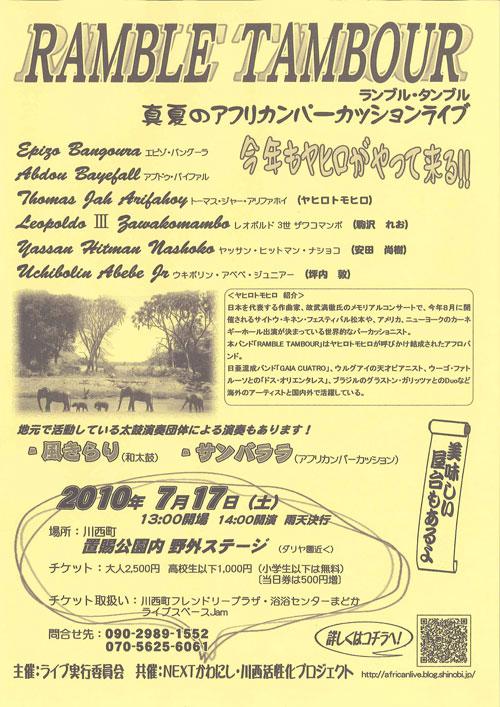 RAMBLE TAMBOUR
ランブル・タンブル
真夏のアフリカンパーカッションライブ
今年もヤヒロがやって来る!!
Epizo Bangoura エピゾ・バングーラ
Abdou Bayefall アブドゥ・バイファル
Thomas Jah Arifahoy トーマス・ジャー・アリファホイ (ヤヒロトモヒロ)
Leopoldo III Zawakomambo レオポルド 3世 ザワコマンボ (駒沢 れお)
Yassan Hitman Nashoko ヤッサン・ヒットマン・ナショコ (安田 尚樹)
Uchibolin Abebe Jr ウキボリン・アベベ・ジュニアー (坪内 敦)
<ヤヒロトモヒロ 紹介>
日本を代表する作曲家、故武満徹氏のメモリアルコンサートで、今年8月に開
催されるサイトウ・キネン・フェスティバル松本や、アメリカ、ニューヨークのカーネ
ギーホール出演が決まっている世界的なパーカッショニスト。
本バンド「RAMBLE TAMBOUR」はヤヒロトモヒロが呼びかけ結成されたアフロバ
ンド。
日亜混成バンド「GAIA CUATRO」、ウルグアイの天才ピアニスト、ウーゴ・ファト
ルーソとの「ドス・オリエンタレス」、ブラジルのグラストン・ガリッツァとのDuoなど
海外のアーティストと国内外で活躍している。
地元で活動している太鼓演奏団体による演奏もあります!
風きらり(和太鼓) サンバララ(アフリカンパーカッション)
美味しい
屋台もあるぞ
2010年 7月17日(土)
13:00開場 14:00開演 雨天決行
場所:川西町
置賜公園内 野外ステージ (ダリヤ園近く)
チケット:大人2,500円 高校生以下1,000円 (小学生以下は無料)
(当日券は500円増)
チケット取扱い:川西町フレンドリープラザ・浴浴センターまどか
ライブスペースJam
問合せ先:090-2989-1552
070-5625-6061
詳しくはコチラへ!
主催:ライブ実行委員会 共催:NEXTかわにし・川西活性化プロジェクト
http://africanlive.blog.shinobi.jp/